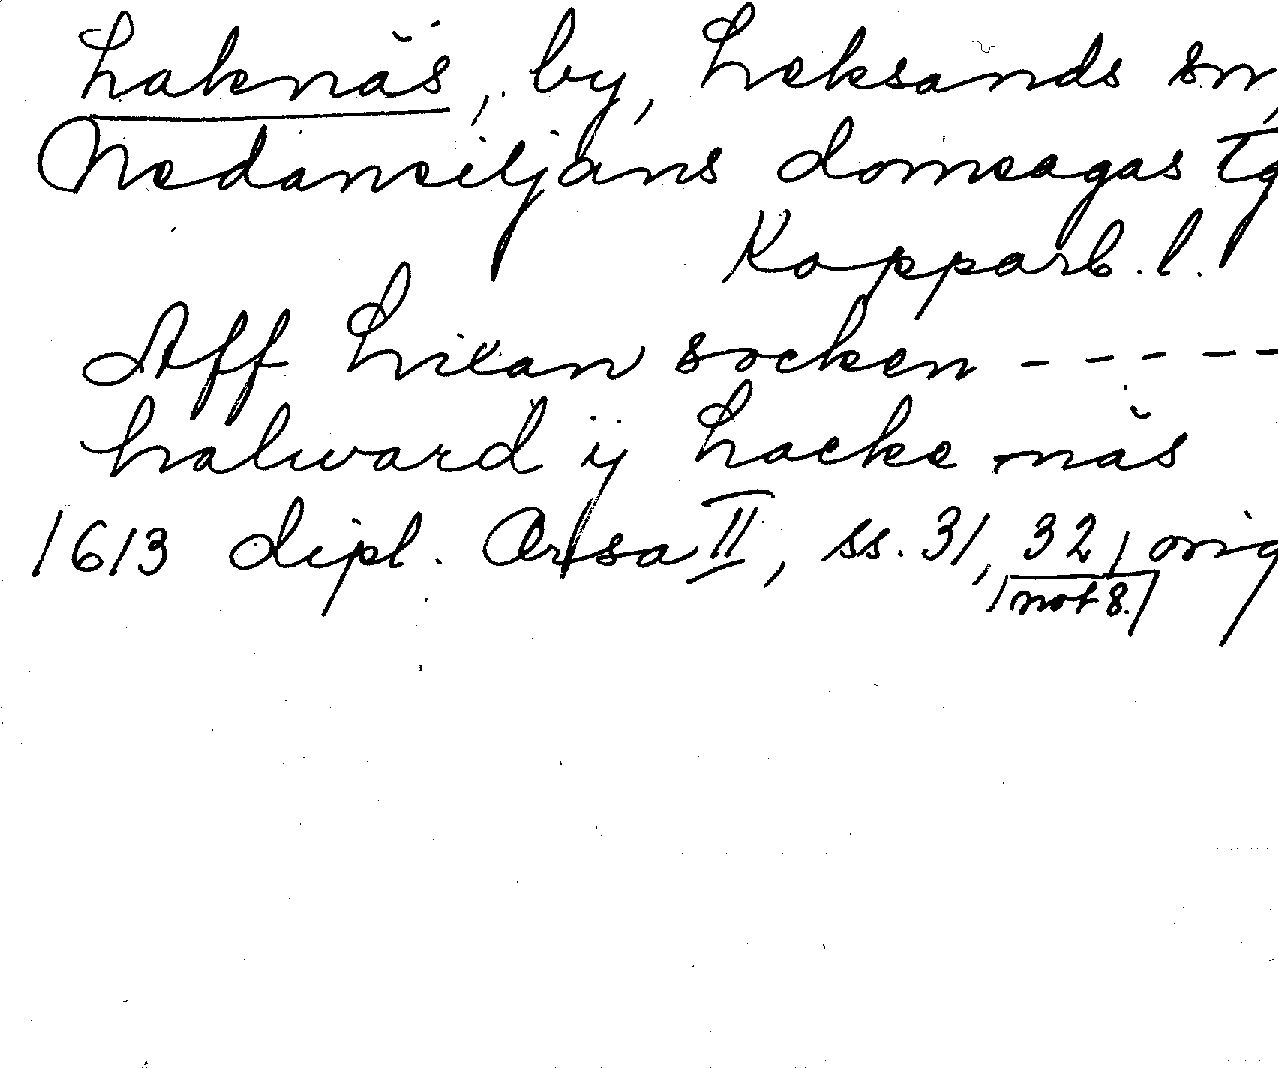 Laknäs, by, Leksands sn,
Nedansiljans domsagas tg
Kopparb. l.
Aff Lixan socken - - - - -
halward ij Lacke näs
1613 dipl. Orsa II, ss. 31, 32, orig
(not 8.)